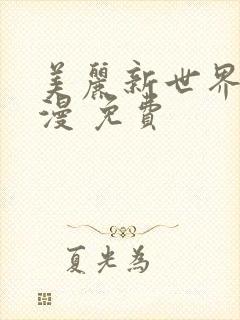 美麗新世界
漫 免費
夏光為